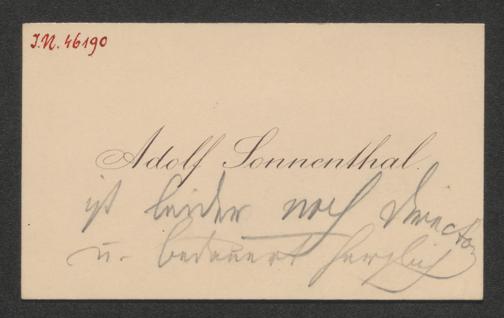 J.N. 46190
Adolf Sonnenthal.
ist leider noch Director
u. bedauert herzlich